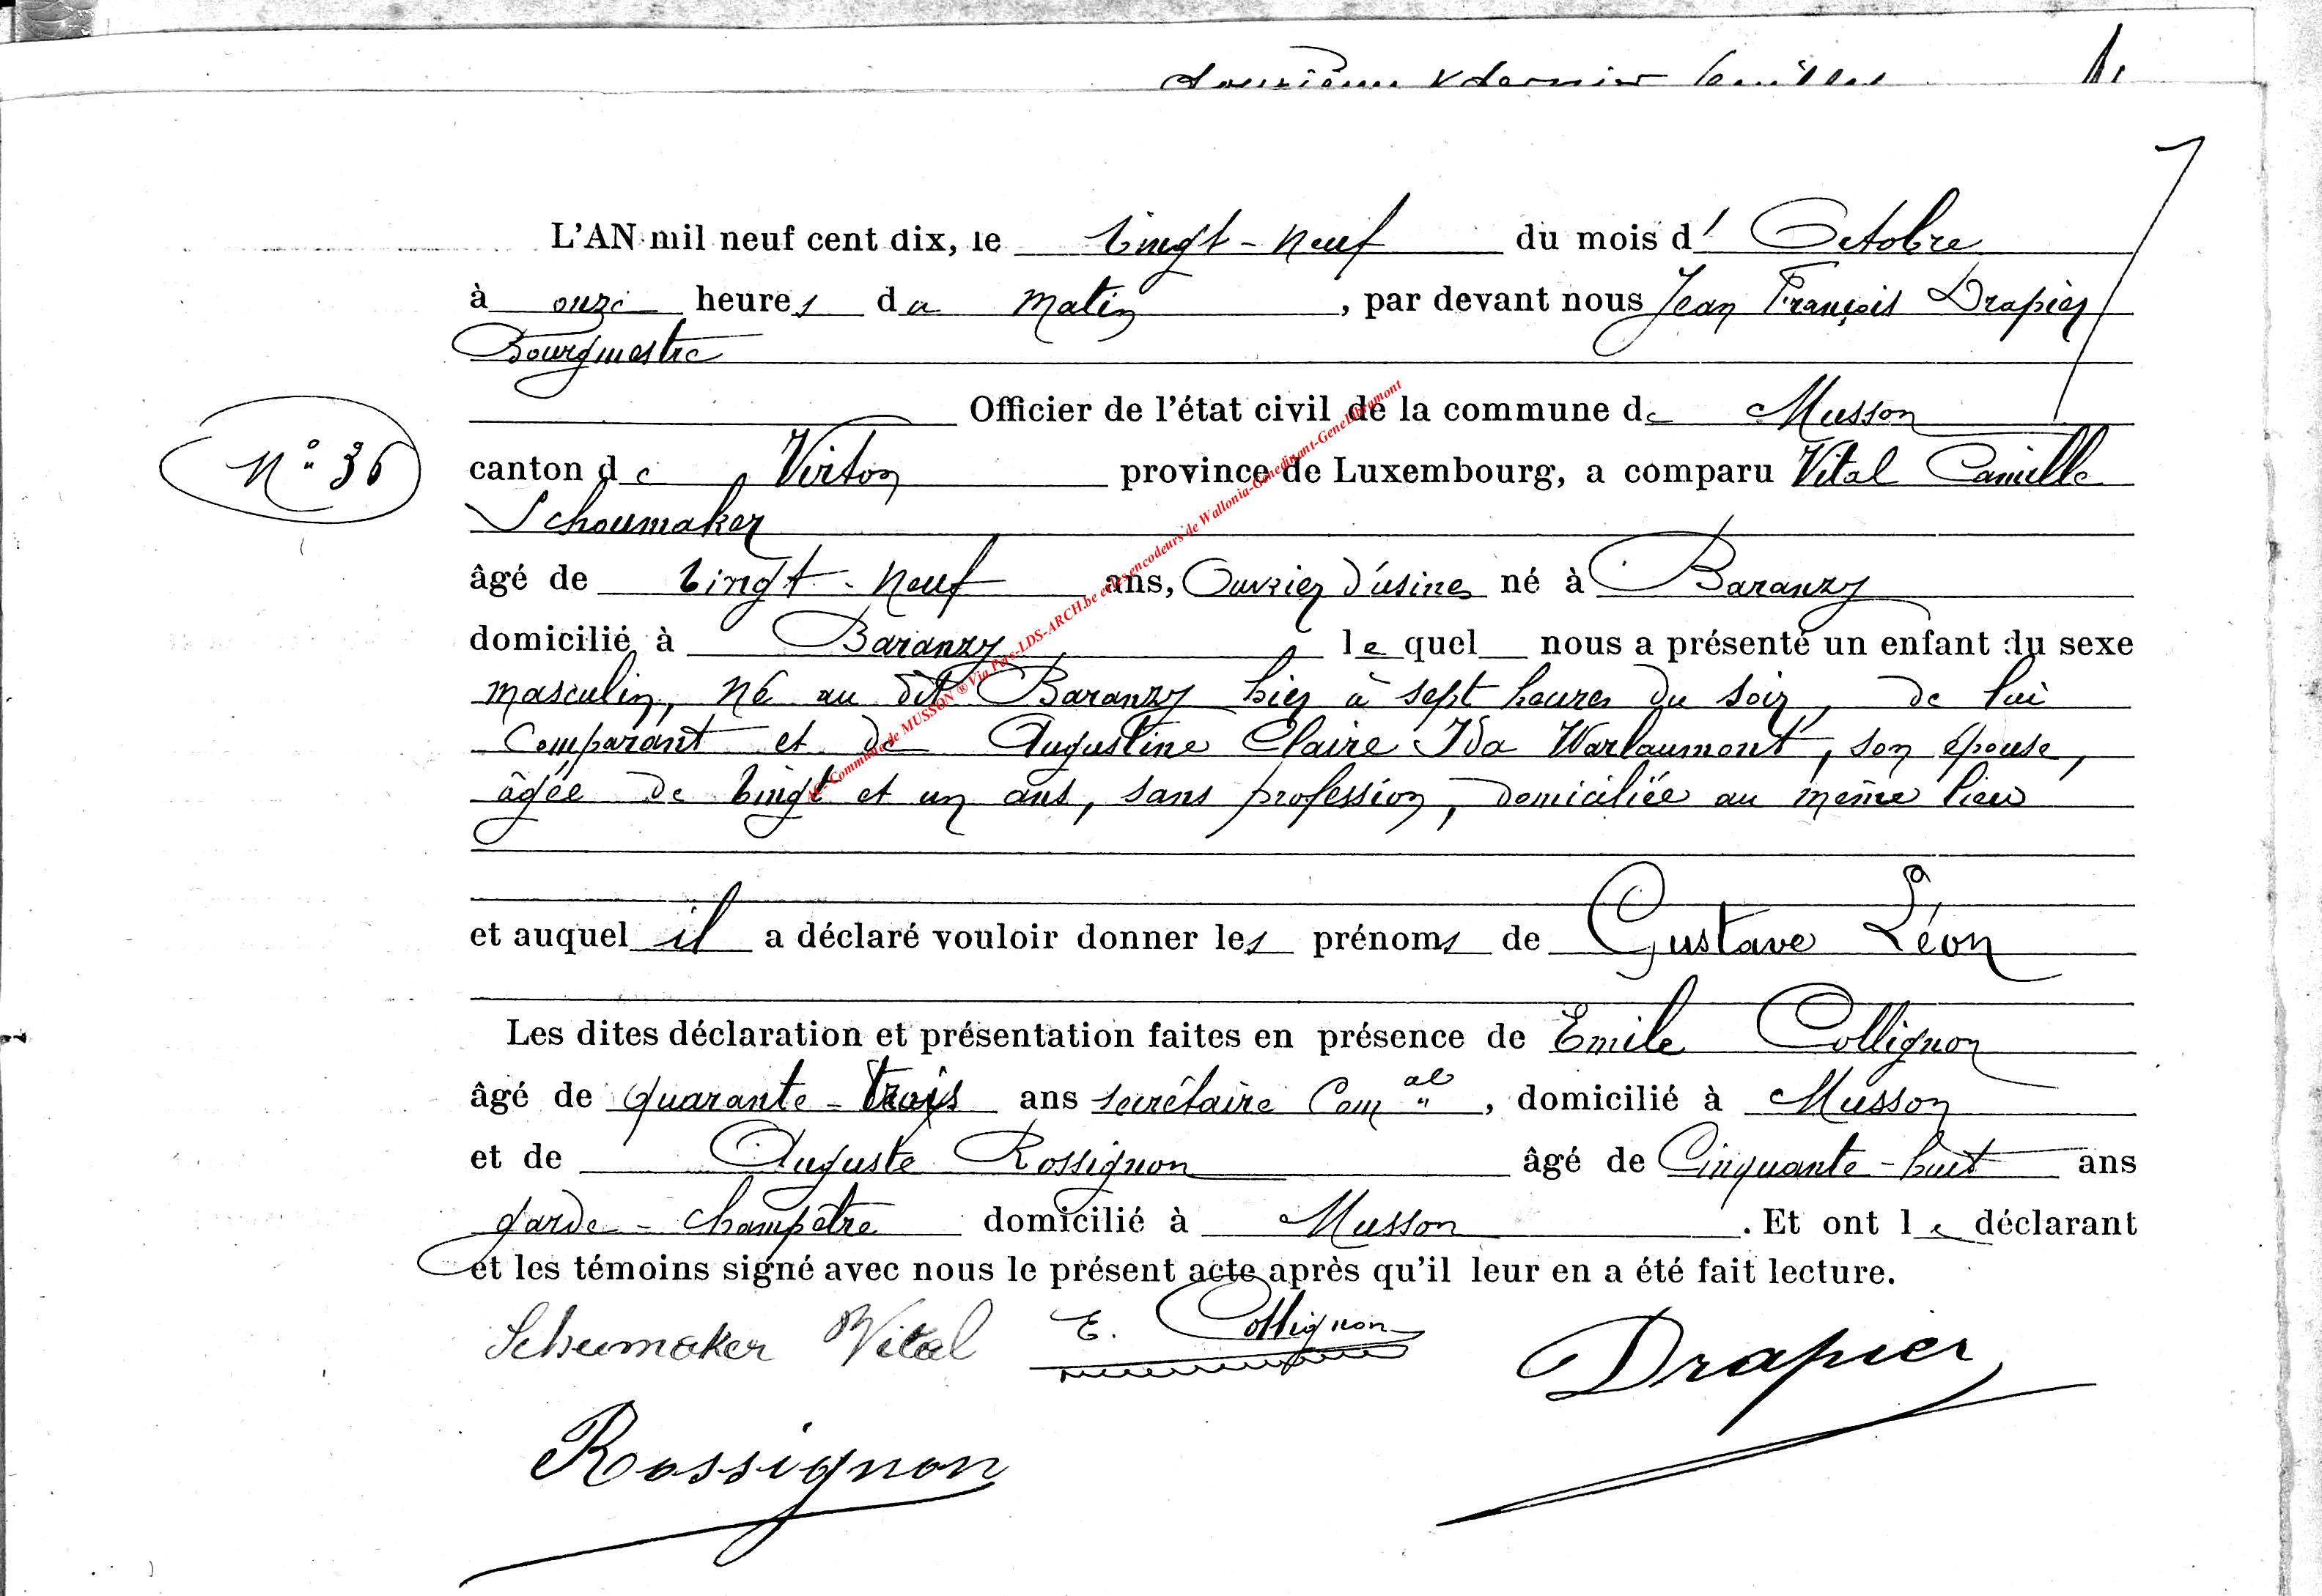 douzième & dernier feuillet
L'AN mil neuf cent dix, le vingt-neuf du mois d' Octobre
à onze heures du matin, par devant nous Jean François Drapier
Bourgmestre
Officier de l'état civil de la commune de Musson
N° 36 canton de Virton province de Luxembourg, a comparu Vital Camille
Schoumaker
âgé de vingt-neuf ans, Ouvrier d'usines né à Baranzy
domicilié à Baranzy lequel nous a présenté un enfant du sexe
masculin, né au dit Baranzy hier à sept heures du soir, de lui
Comparant et de Augustine Claire Ida Warlaumont, son épouse,
âgée de vingt et un ans, sans profession, domiciliée au même lieu
et auquel il a déclaré vouloir donner les prénoms de Gustave Léon
Les dites déclaration et présentation faites en présence de Emile Collignon
âgé de quarante-trois ans secrétaire Com al, domicilié à Musson
et de Auguste Rossignon âgé de Cinquante-huit ans
garde-champêtre domicilié à Musson. Et ont le déclarant
et les témoins signé avec nous le présent acte après qu'il leur en a été fait lecture.
Schumaker Vital E. Collignon Drapier
Rossignon